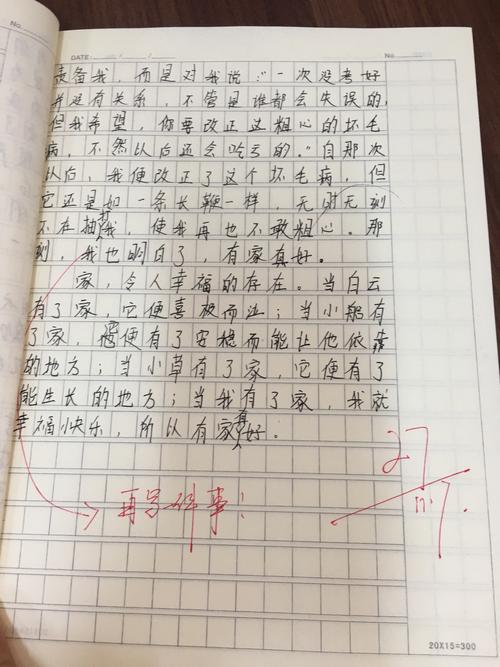 No.
DATE: / /
No
责备我，而是对我说："一次没考好
并没有关系，不管是谁都会失误的，
但我希望，你要改正这粗心的坏毛
病，不然以后还会吃亏的。"自那次
以后，我便改正了这个坏毛病，但
它还是如一条长鞭一样，无时无刻
不在抽打我，使我再也不敢粗心。那
刻，我也明白了，有家真好。
家，令人幸福的存在。当白云
有了家，它便喜极而泣；当小船有
了家，便有了安稳而能让他依靠
的地方；当小草有了家，它便有了
能生长的地方；当我有了家，我就
幸福快乐，所以有家真好。
再写件事！
27
11.7
20X15=300